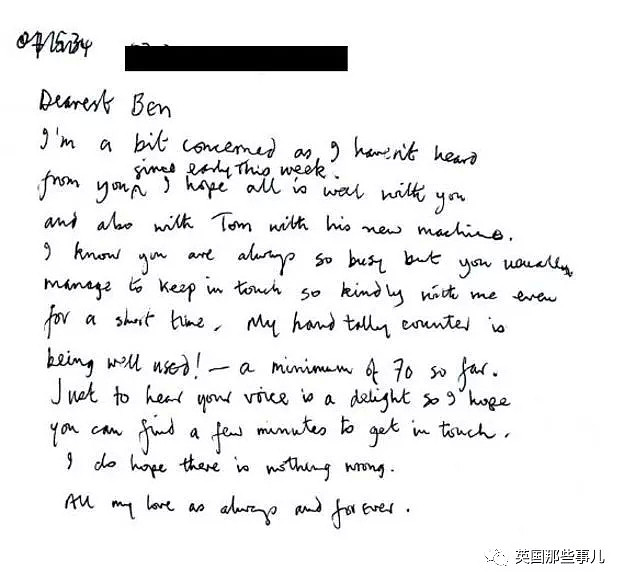 Dearest Ben
I'm a bit concerned as I haven't heard
since early this week.
from you, I hope all is well with you
and also with Tom with his new machine.
I know you are always so busy but you usually
manage to keep in touch so kindly with me even
for a short time. My hand tally counter is
being well used! – a minimum of 70 so far.
Just to hear your voice is a delight so I hope
you can find a few minutes to get in touch.
I do hope there is nothing wrong.
All my love as always and forever.
英国那些事儿